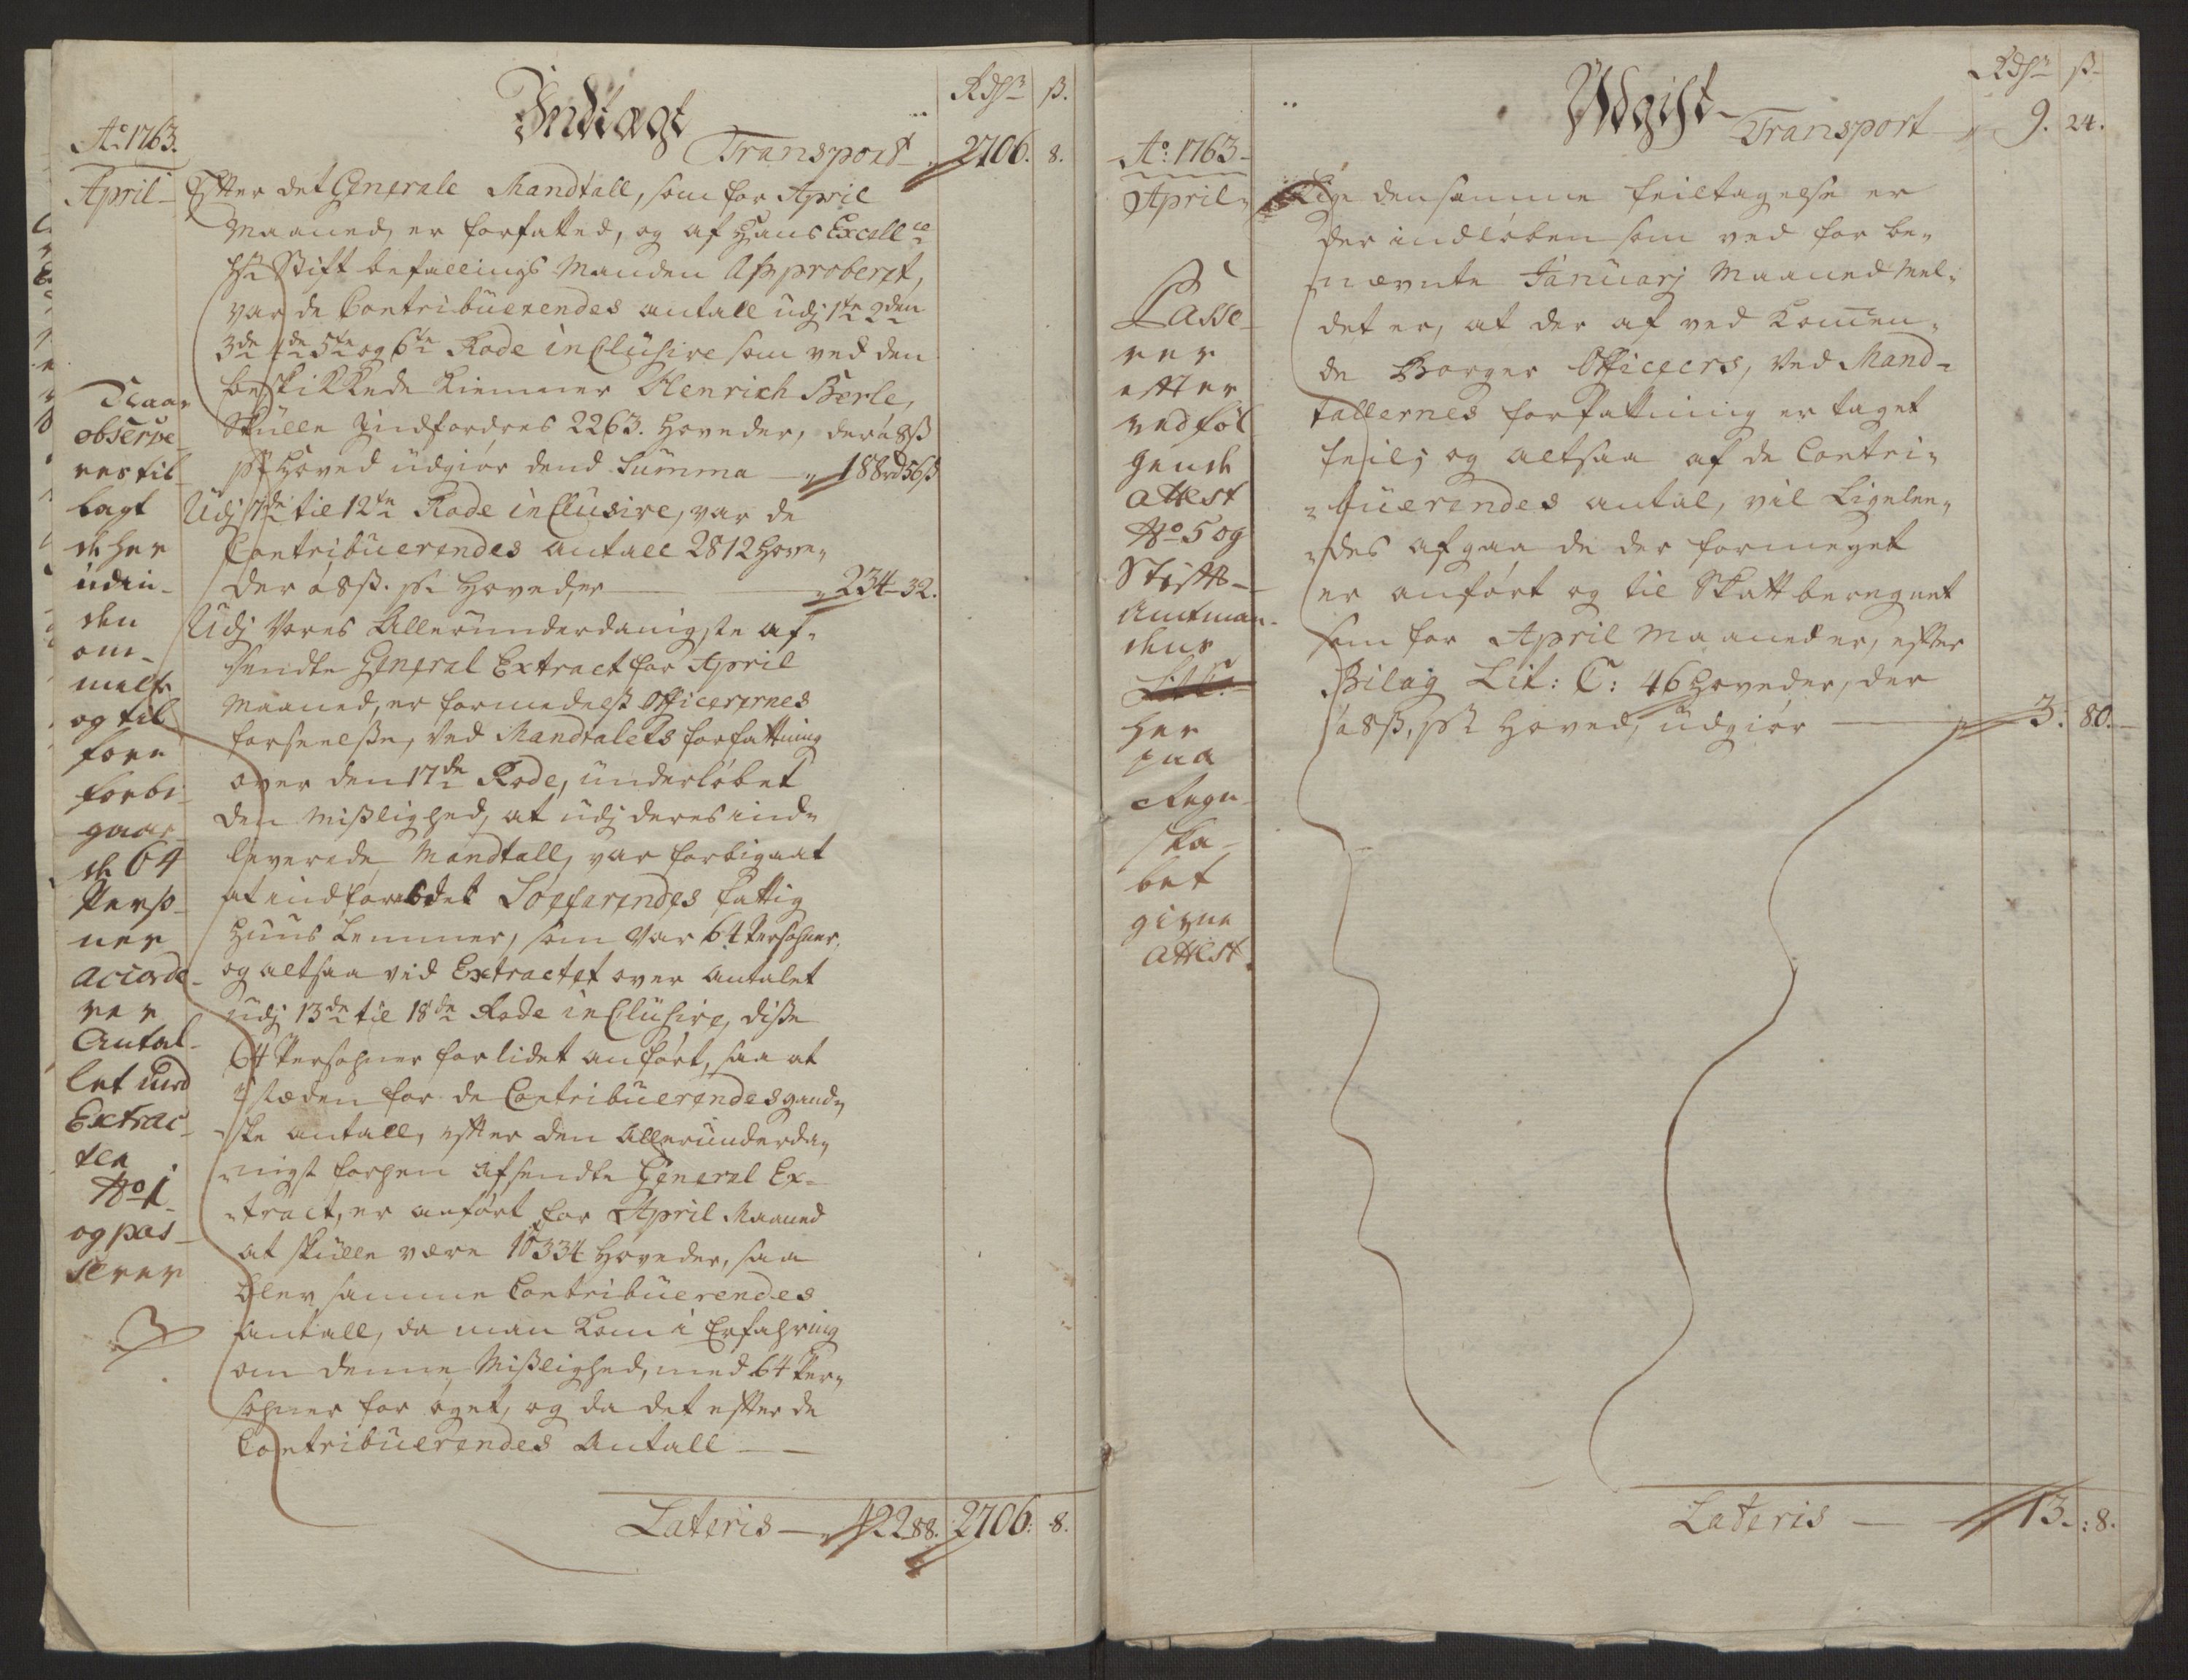 Indtægt
Rdlr ß.
Ao 1763.
Transport 2706. 8.
April
Efter det Generale Mandtall, som for April
Maaned, er forfatted, og af Hans Excell ce
Hr Stift befallings Manden Approberet,
var de Contribuerendes antall udj 1te 2den
3de 4de 5te og 6te Rode inclusive som ved den
beskikkede Kiemner Henrich Borle,
Skulle Indfordres 2263. Hoveder, der a 8 ß
pr Hoved udgiør dend Summa 188 rd 56 ß
Udj 7de til 12te Rode inclusive, var de
Contribuerendes antall 2812 Hove-
der a 8 ß. pr Hoveder 234 - 32.
Udj Vores Allerunderdanigste af-
sendte General Extract for April
Maaned, er formedelst Officerernes
forseelße, ved Mandtalets forfattning
over den 17de Rode, underløbet
den Mißlighed, at udj deres ind-
leverede Mandtall, var forbigaat
at indføre det Søefarendes fattig
Huus Lemmer, som var 64 Persohner,
og altsaa ved Extractet over Antalet
udj 13de til 18de Rode inclusive, diße
64 Persohner for lidet anført, saa at
i stæden for de Contribuerendes gand-
ske antall, efter den Allerunderda-
nigst forhen afsendte General Ex-
tract, er anført for April Maaned
at skulle være 10334 Hoveder, saa
blev samme Contribuerendes
Antall, da man kom i Erfahring
om denne Mißlighed, med 64 Per-
sohner for øget, og da det efter de
Contribuerendes Antall
Lateris 422 88. 2706: 8.
observe-
res til-
lagt
de her
udin-
den
om-
melte
og til
forn
forbi-
gaae-
de 64
Perso-
ner
accorde-
rer
Antal-
let med
Extrac-
ten
No 1
og pas-
serer
Udgift
Rdlr ß
Transport 9. 24.
Ao 1763
April
Lige den samme feiltagelse er
der indløben som ved for be-
nævnte Januarj Maaned Mel-
det er, at der af ved Kommen-
de Borger Officeers, ved Mand-
tallernes forfattning er taget
feil; og altsaa af de Contri-
buerendes antal, vil Ligelee-
des afgaa de der formeget
er anført og til Skatt beregnet
som for April Maaned er, efter
Bilag Lit: C: 46 Hoveder, der
a 8 ß, pr Hoved, udgiør 3. 80.
Passe-
rer
efter
vedføl
gende
attest
No 5 og
Stift-
amtman-
dens
her
paa
Regn-
ska-
bet
givne
attest
Lateris 13. 8.